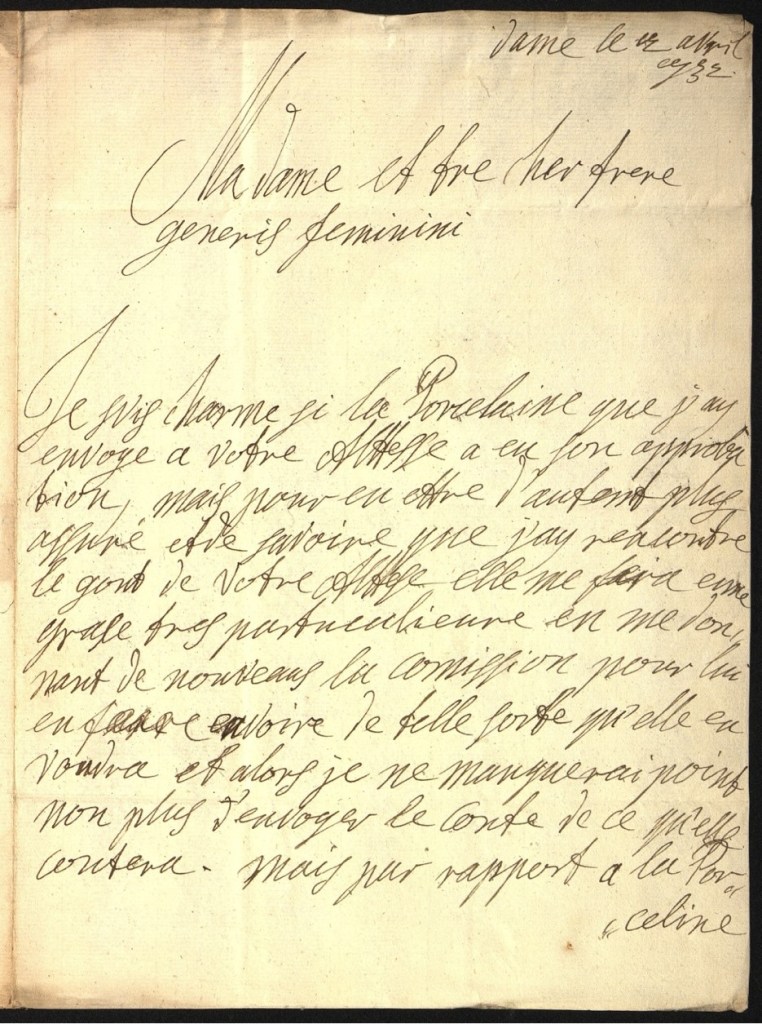 dame le 12 avril
1732
Madame et tre her frere
generis feminini
Je suis charme si la Porcelaine que j'ay
envoye a votre Altesse a eu son approba
tion, mais pour en ettre d'autent plus
assuré et de savoire que j'ay rencontre
le gout de votre Altesse elle me fera enne
grase tres particulieure en me don„
nant de nouveaus la Comission pour lui
en faire envoire de telle sorte qu'elle en
voudra et alors je ne manquerai point
non plus d'envoyer le Conte de ce qu'elle
contera. mais par rapport a la Por„
„celine